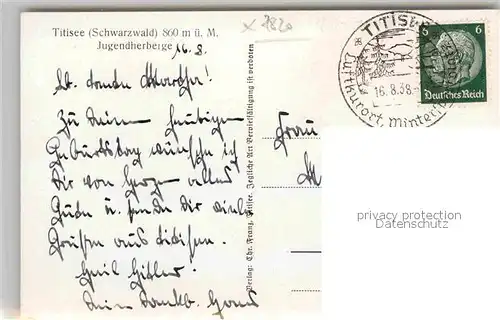 Titisee (Schwarzwald) 860 m ü. M.
Jugendherberge
16.8.
2820
Zu Deinem heutigen
Geburtstag wünsche ich
Dir von Herzen alles
Gute u. sende Dir viele
Grüße aus Titisee.
Heil Hitler
Dein dankb.
Verlag: Chr. Franz, Titisee. Jegliche Art Vervielfältigung ist verboten
Frau
TITISEE
16.8.38
Luftkurort, Winter
6 6
Deutsches Reich
privacy protection
Datenschutz